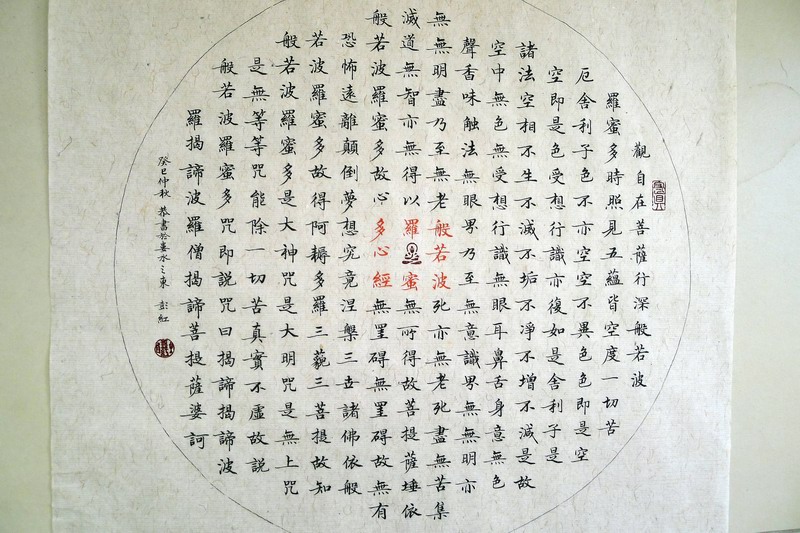 觀自在菩薩行深般若波
羅蜜多時照見五蘊皆空度一切苦
厄舍利子色不亦空空不異色色即是空
空即是色受想行識亦復如是舍利子是
諸法空相不生不滅不垢不淨不增不減是故
空中無色無受想行識無眼耳鼻舌身意無色
聲香味触法無眼界乃至無意識界無無明亦
無無明盡乃至無老
死亦無老死盡無苦集
滅道無智亦無得以
無所得故菩提薩埵依
般若波羅蜜多故心
無罣碍無罣碍故無有
般若波
羅蜜
多心經
恐怖遠離顛倒夢想究竟涅槃三世諸佛依般
若波羅蜜多故得阿耨多羅三藐三菩提故知
般若波羅蜜多是大神咒是大明咒是無上咒
是無等等咒能除一切苦真實不虛故說
般若波羅蜜多咒即說咒曰揭諦揭諦波
羅揭諦波羅僧揭諦菩提薩婆訶
癸巳仲秋 恭書於婁水之東 彭紅